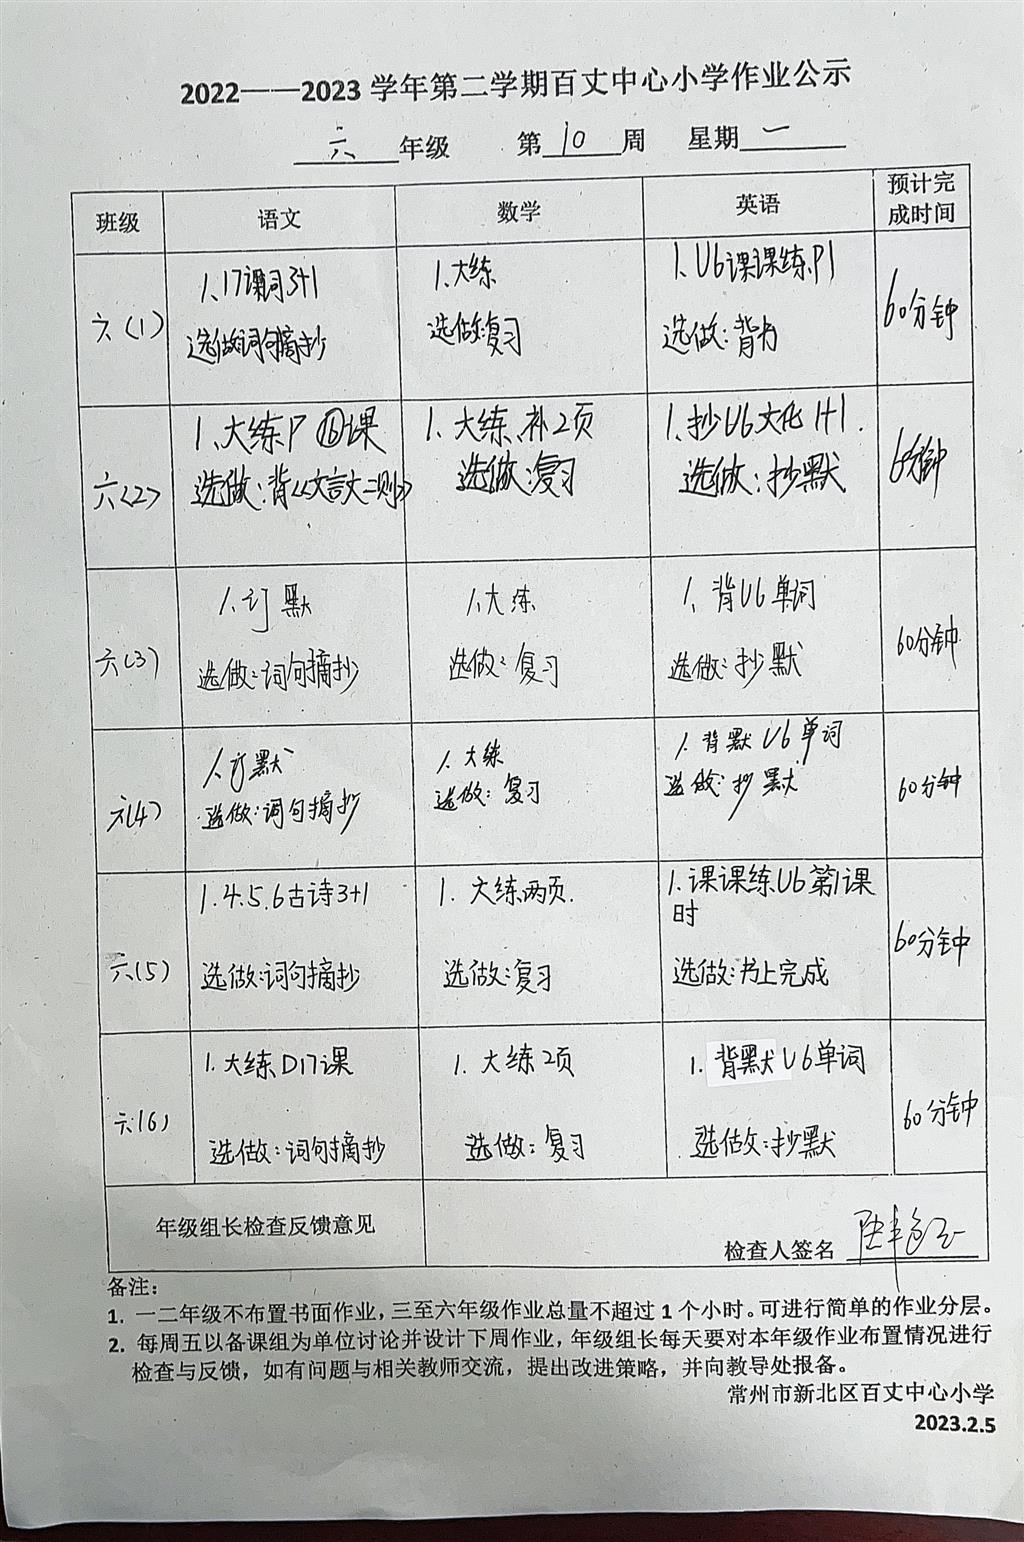 2022——2023 学年第二学期百丈中心小学作业公示
六 年级 第 10 周 星期 一
班级 语文 数学 英语 预计完
成时间
六(1)
1、17课词3+1
选做词句摘抄
1、大练
选做:复习
1、U6课课练P1
选做:背书
60分钟
六(2)
1、大练P⑯课
选做:背《文言文二则》
1、大练、补2页
选做:复习
1、抄U6文化1+1.
选做:抄默
60分钟
六(3)
1、订默
选做:词句摘抄
1、大练
选做:复习
1、背U6单词
选做:抄默
60分钟
六(4)
1、订默
选做:词句摘抄
1、大练
选做:复习
1、背默U6单词
选做:抄默
60分钟
六(5)
1.4.5.6古诗3+1
选做:词句摘抄
1. 大练两页.
选做:复习
1.课课练U6第1课
时
选做:书上完成
60分钟
六(6)
1.大练D17课
选做:词句摘抄
1. 大练2页
选做:复习
1. 背默U6单词
选做:抄默
60分钟
年级组长检查反馈意见
检查人签名
备注:
1. 一二年级不布置书面作业,三至六年级作业总量不超过 1 个小时。可进行简单的作业分层。
2. 每周五以备课组为单位讨论并设计下周作业,年级组长每天要对本年级作业布置情况进行
检查与反馈,如有问题与相关教师交流,提出改进策略,并向教导处报备。
常州市新北区百丈中心小学
2023.2.5